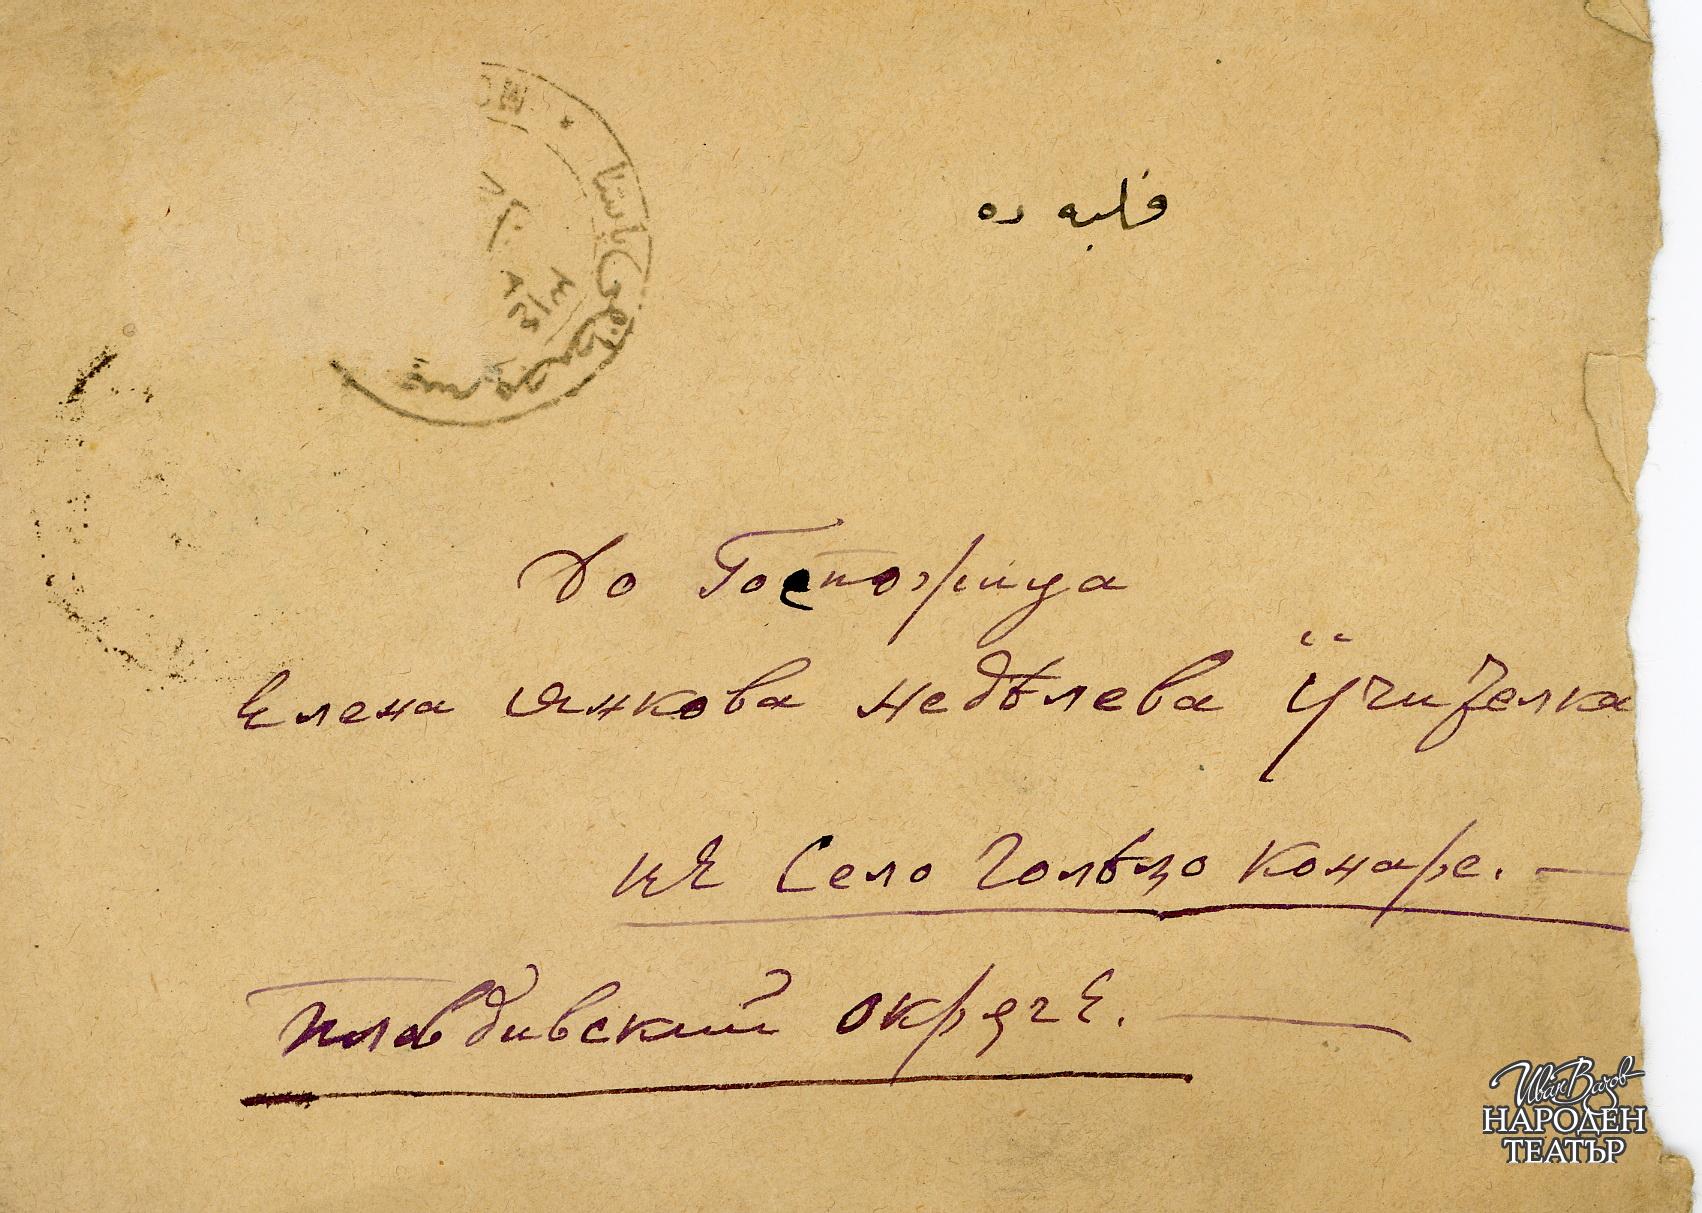 فلبه ده
До Госпожица
Елена Янкова Недѣлева Учителка
въ Село Голѣмо Конаре. —
Пловдивский окрѫгъ. —
Иван Вазов
НАРОДЕН
ТЕАТЪР